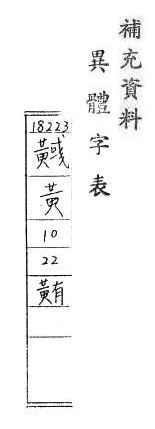 補充資料
異體字表
18223
黃
10
22